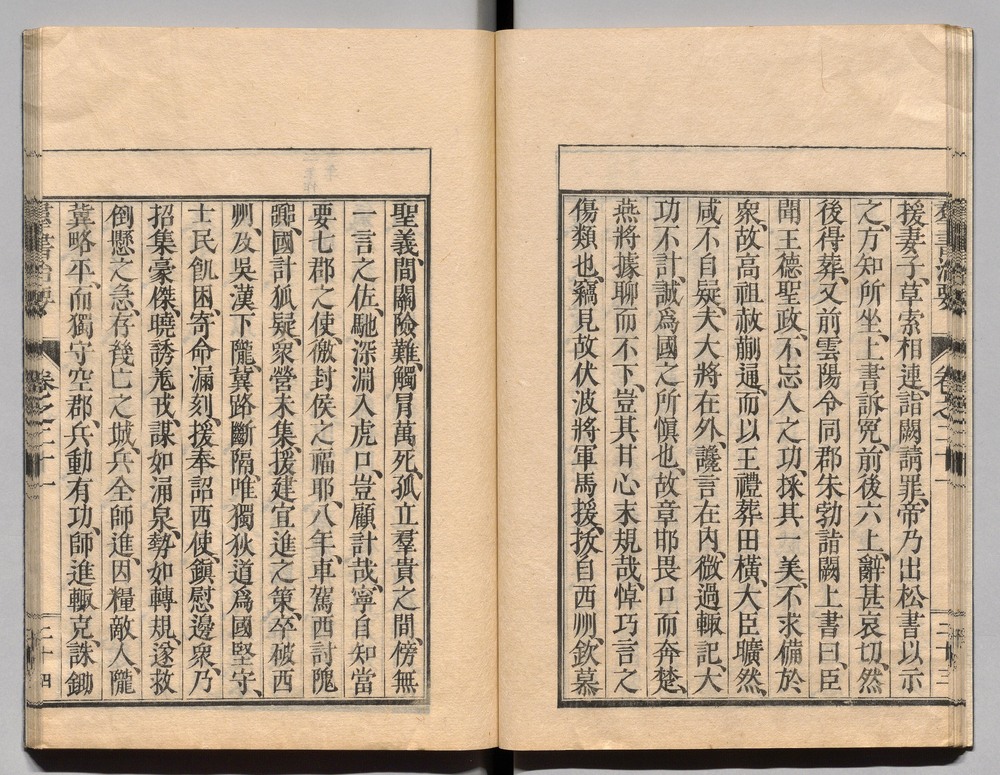 羣書治要 卷之二十一 二十三
援妻子、草索相連、詣闕請罪、帝乃出松書以示
之、方知所坐、上書訴冤、前後六上、辭甚哀切、然
後得葬、又前雲陽令同郡朱勃詣闕上書曰、臣
聞王德聖政、不忘人之功、採其一美、不求備於
衆、故高祖赦蒯通、而以王禮葬田橫、大臣曠然、
咸不自疑、夫大將在外、讒言在內、微過輙記、大
功不計、誠爲國之所愼也、故章邯畏口而奔楚、
燕將據聊而不下、豈其甘心末規哉、悼巧言之
傷類也、竊見故伏波將軍馬援、拔自西州、欽慕
聖義、間關險難、觸冒萬死、孤立羣貴之間、傍無
一言之佐、馳深淵、入虎口、豈顧計哉、寧自知當
要七郡之使、徼封侯之福耶、八年、車駕西討隗
囂、國計狐疑、衆營未集、援建宜進之策、卒破西
州、及吳漢下隴、冀路斷隔、唯獨狄道爲國堅守、
士民飢困、寄命漏刻、援奉詔西使、鎭慰邊衆、乃
招集豪傑、曉誘羌戎、謀如涌泉、勢如轉規、遂救
倒懸之急、存幾亡之城、兵全師進、因糧敵人、隴
冀略平、而獨守空郡、兵動有功、師進輙克、誅鋤
羣書治要 卷之二十一 二十四